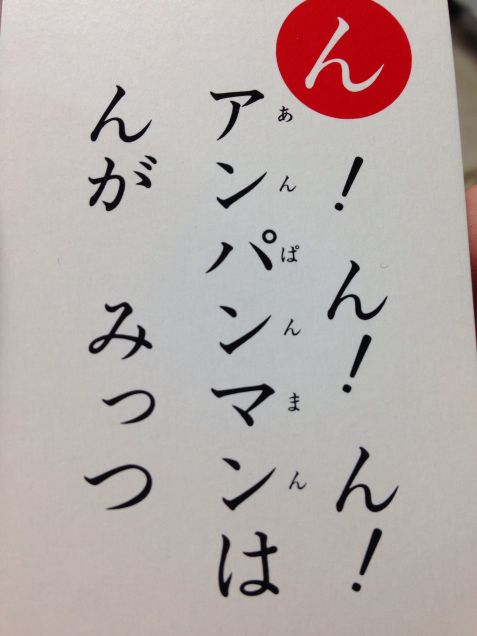 ん！ん！ん！
アンパンマンは
あんぱんまん
んが みっつ